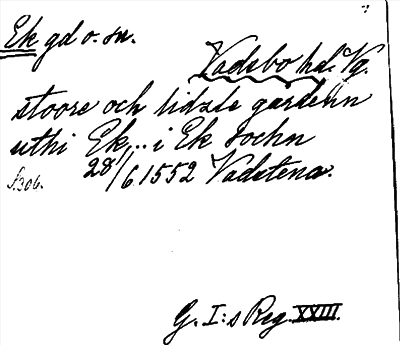 Ek gd o. sn.
Vadsbo hd. Vg.
stoore och lidzle gardenn
uthi Ek,.. i Ek sochn
28/6 1552 Vadstena.
s. 306.
G. I:s Reg. XXIII.